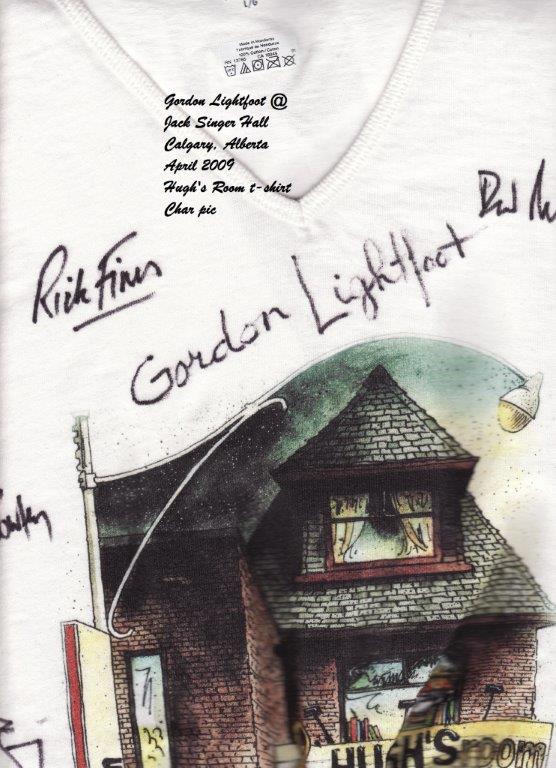 L/G
Made in Honduras
100% Cotton / Coton
Gordon Lightfoot @
Jack Singer Hall
Calgary, Alberta
April 2009
Hugh's Room t-shirt
Char pic
Rick Fines
Gordon Lightfoot
HUGH'S room